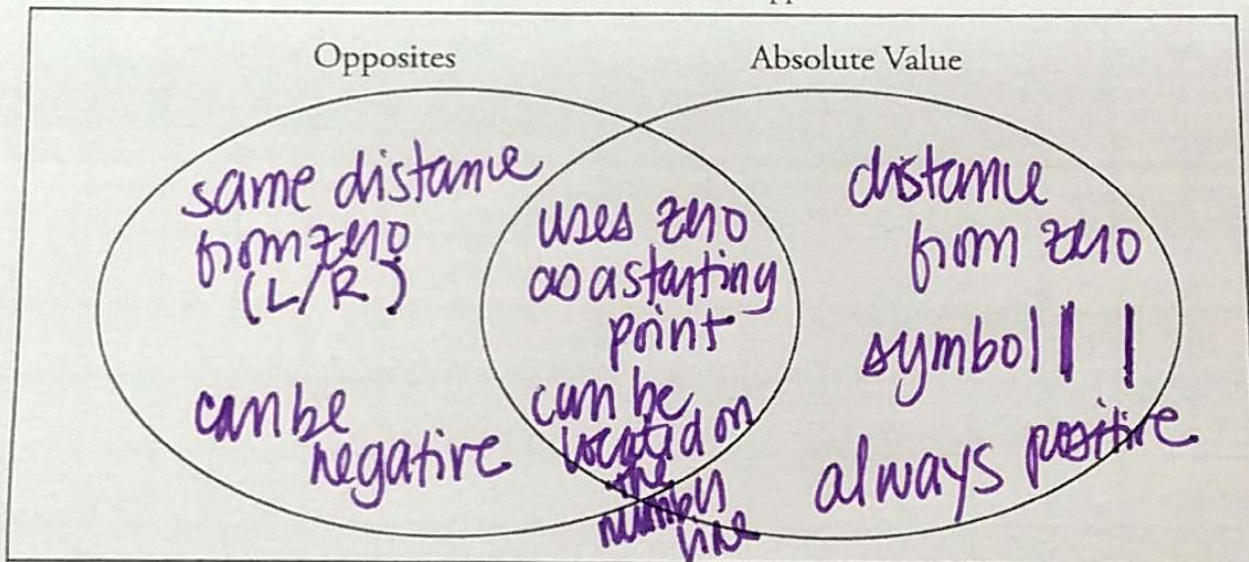 Opposites
Absolute Value
same distance
from zero
(L/R)
can be
negative
uses zero
as a starting
point
can be
located on
the
number
line
distance
from zero
symbol | |
always positive